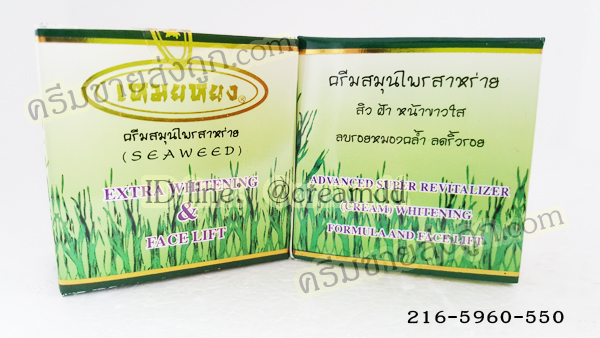 เหมยหยง®
ครีมสมุนไพรสาหร่าย
(SEAWEED)
EXTRA WHITENING
&
FACE LIFT
ครีมสมุนไพรสาหร่าย
สิว ฝ้า หน้าขาวใส
ลบรอยหมองคล้ำ ลดริ้วรอย
ADVANCED SUPER REVITALIZER
(CREAM) WHITENING
FORMULA AND FACE LIFT
ครีมขายส่งถูก.com
ID line : @creamdd
ครีมขายส่งถูก.com
216-5960-550